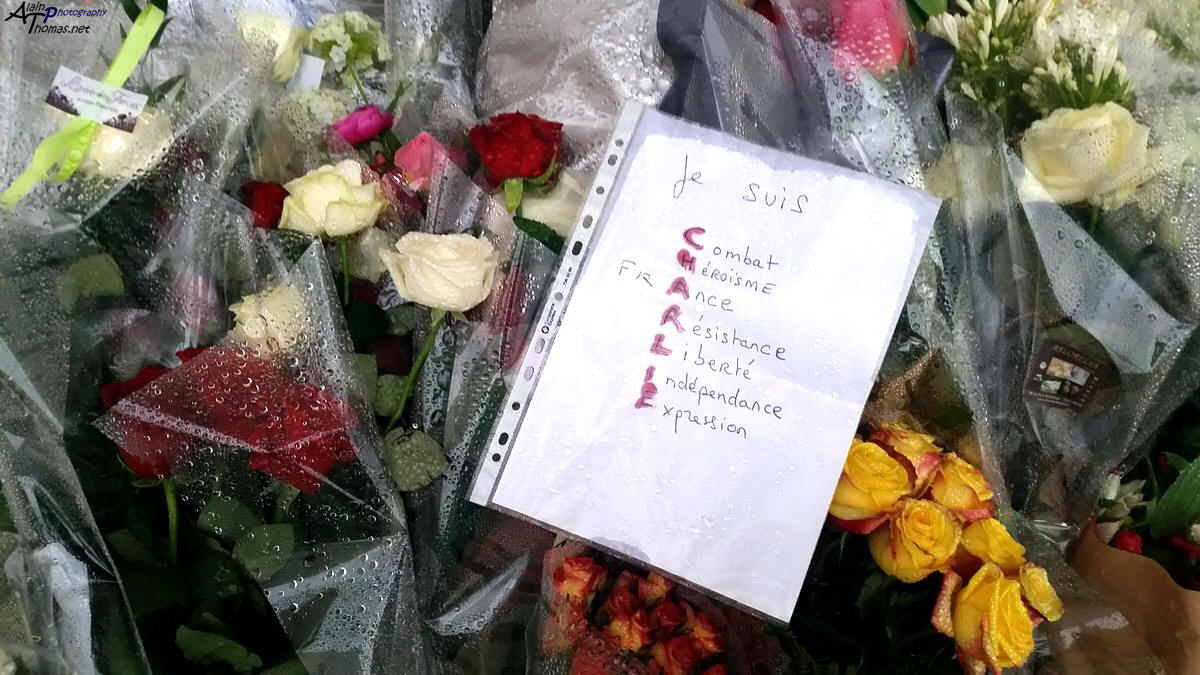 Alain Photography
Thomas.net
Je suis
Combat
Héroïsme
FRAnce
Résistance
Liberté
Indépendance
Expression